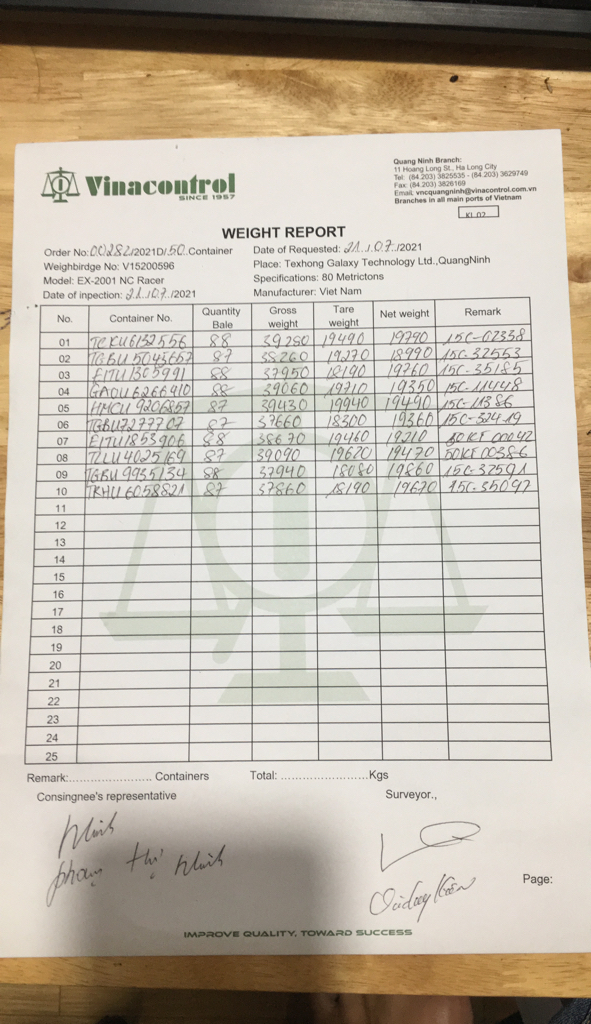 Vinacontrol
SINCE 1957
Quang Ninh Branch:
11 Hoang Long St., Ha Long City
Tel: (84.203) 3825535 - (84.203) 3629749
Fax: (84.203) 3826169
Email: vncquangninh@vinacontrol.com.vn
Branches in all main ports of Vietnam
KL 02
WEIGHT REPORT
Order No: 00282/2021D/50.Container Date of Requested: 21/07/2021
Weighbirdge No: V15200596 Place: Texhong Galaxy Technology Ltd.,QuangNinh
Model: EX-2001 NC Racer Specifications: 80 Metrictons
Date of inpection: 21/07/2021 Manufacturer: Viet Nam
No. Container No. Quantity Bale Gross weight Tare weight Net weight Remark
01 TCKU6132556 88 39280 19490 19790 15C-02338
02 TGBU5043667 87 38260 19270 18990 15C-32553
03 EITU1305991 88 37950 18190 19760 15C-35185
04 GAOU6266910 88 39060 19710 19350 15C-11448
05 HMCU9206857 87 39430 19940 19490 15C-11386
06 TGBU7277707 87 37660 18300 19360 15C-32419
07 EITU1853906 88 38670 19460 19210 50KF 00042
08 TLLU4025169 87 39090 19620 19470 50KF 00386
09 TGBU9935134 88 37940 18080 19860 15C-37591
10 TRHU6058821 87 37860 18190 19670 15C-35097
11
12
13
14
15
16
17
18
19
20
21
22
23
24
25
Remark:................... Containers Total: .....................Kgs
Consingnee's representative Surveyor.,
Minh
Phạm Thị Minh
Page:
IMPROVE QUALITY, TOWARD SUCCESS